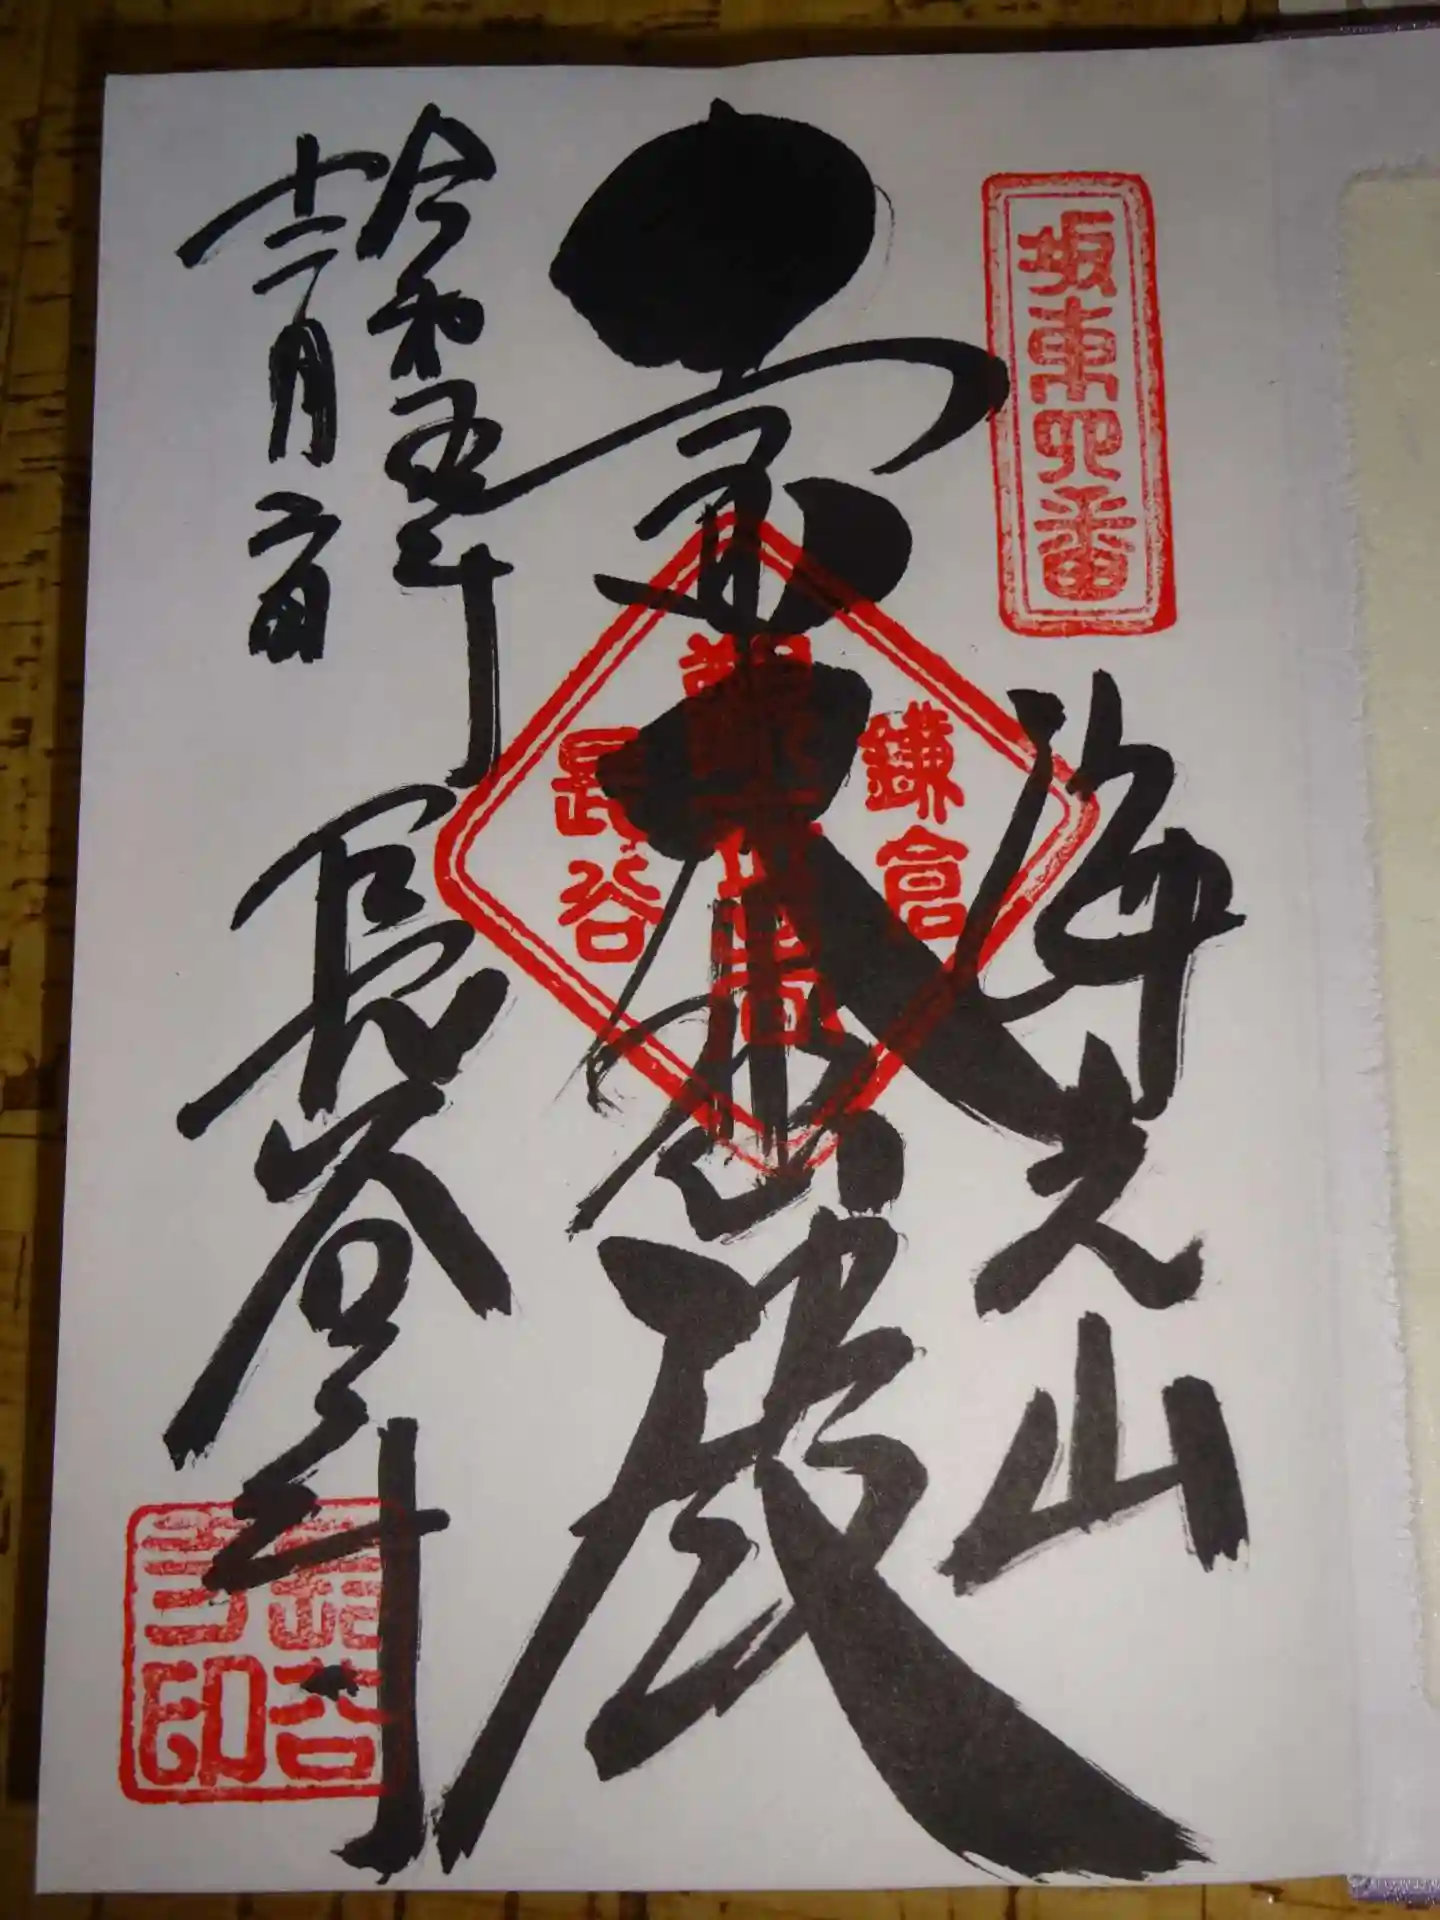 坂東四番
海光山
大悲殿
鎌倉
観世音
長谷
令和五年
十二月二日
長谷寺
長谷
寺印